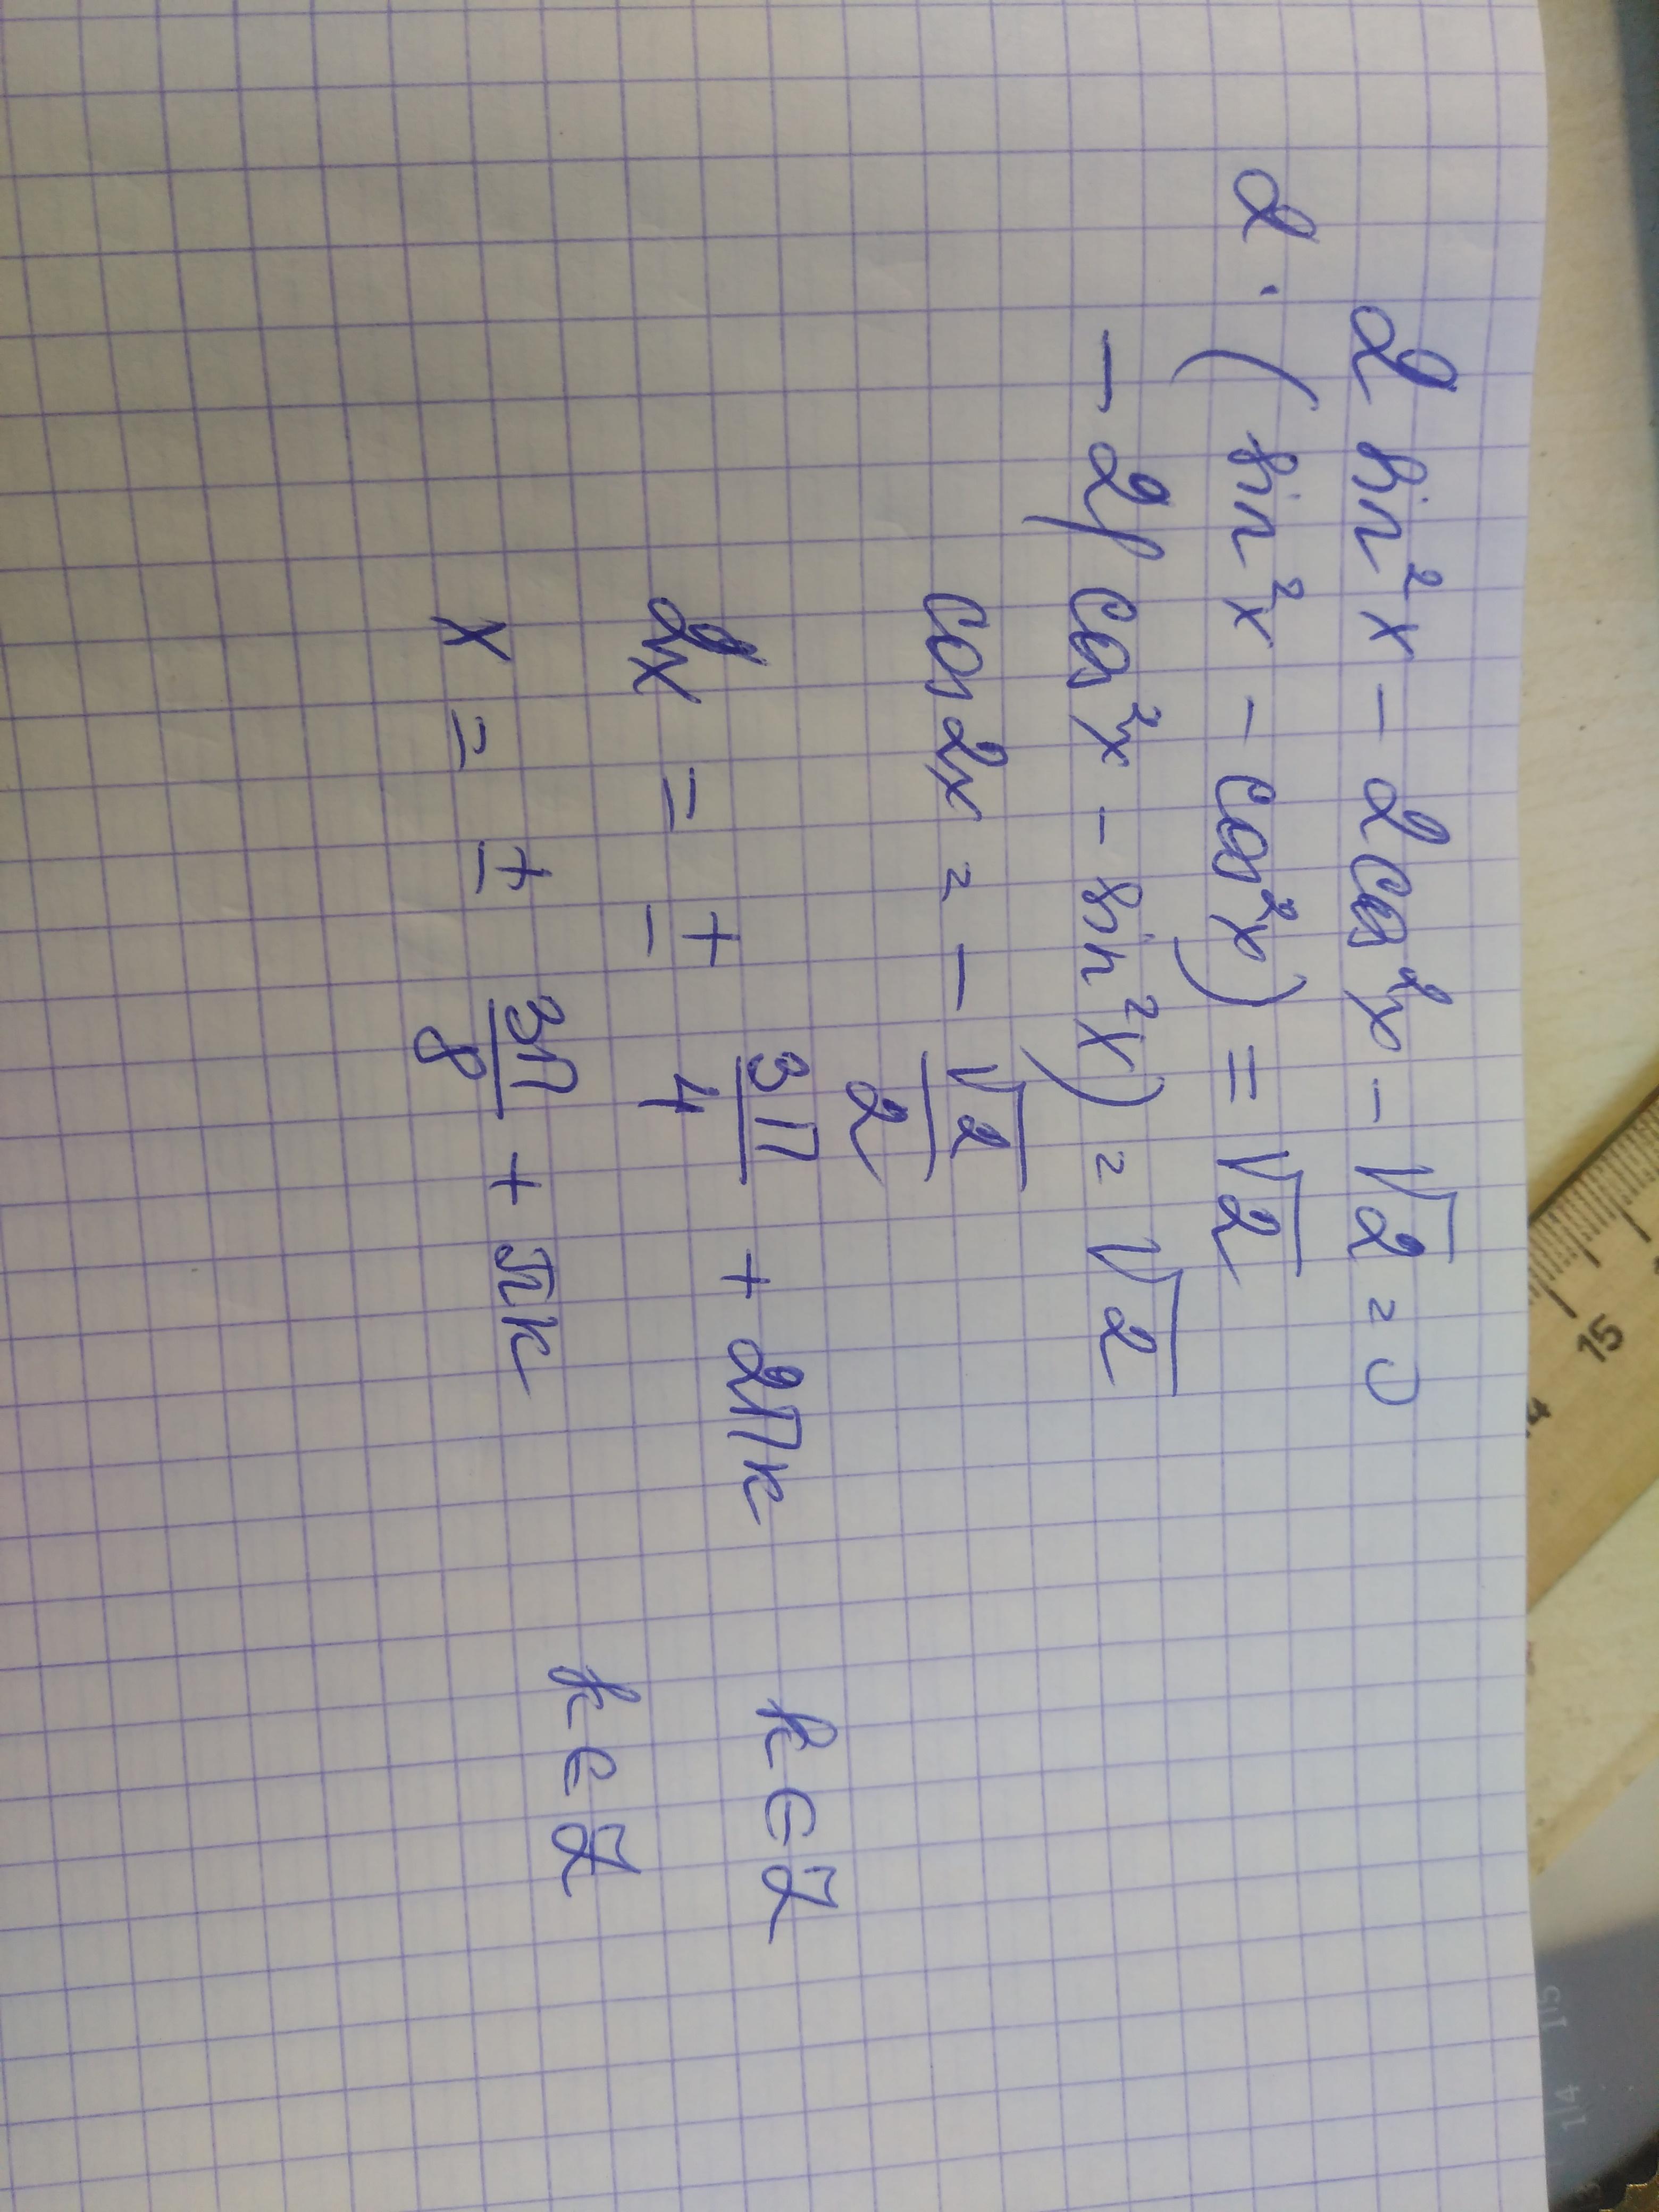 2 sin²x - 2cos²x - √2 = 0
2 · (sin²x - cos²x) = √2
- 2(cos²x - sin²x) = √2
cos2x = - √2/2
2x = ± 3П/4 + 2Пk k∈Z
x = ± 3П/8 + πk k∈Z
15
14
15
14